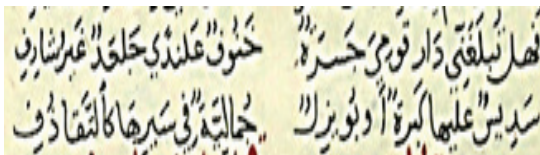 فهل تُبلغنّي دار قومي جَسرَةٌ خنوفٌ علندى جلعدٌ غير شارف
سديسٌ عليها كبرةٌ أو بويزلٌ جماليّةٌ في سيرها كالتقاذف